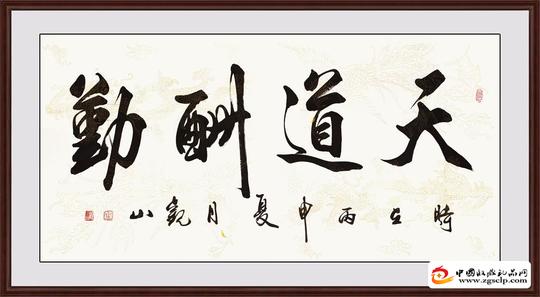 天道酬勤
時在丙申夏月觀山
中國收藏礼品网
www.zgsclp.com